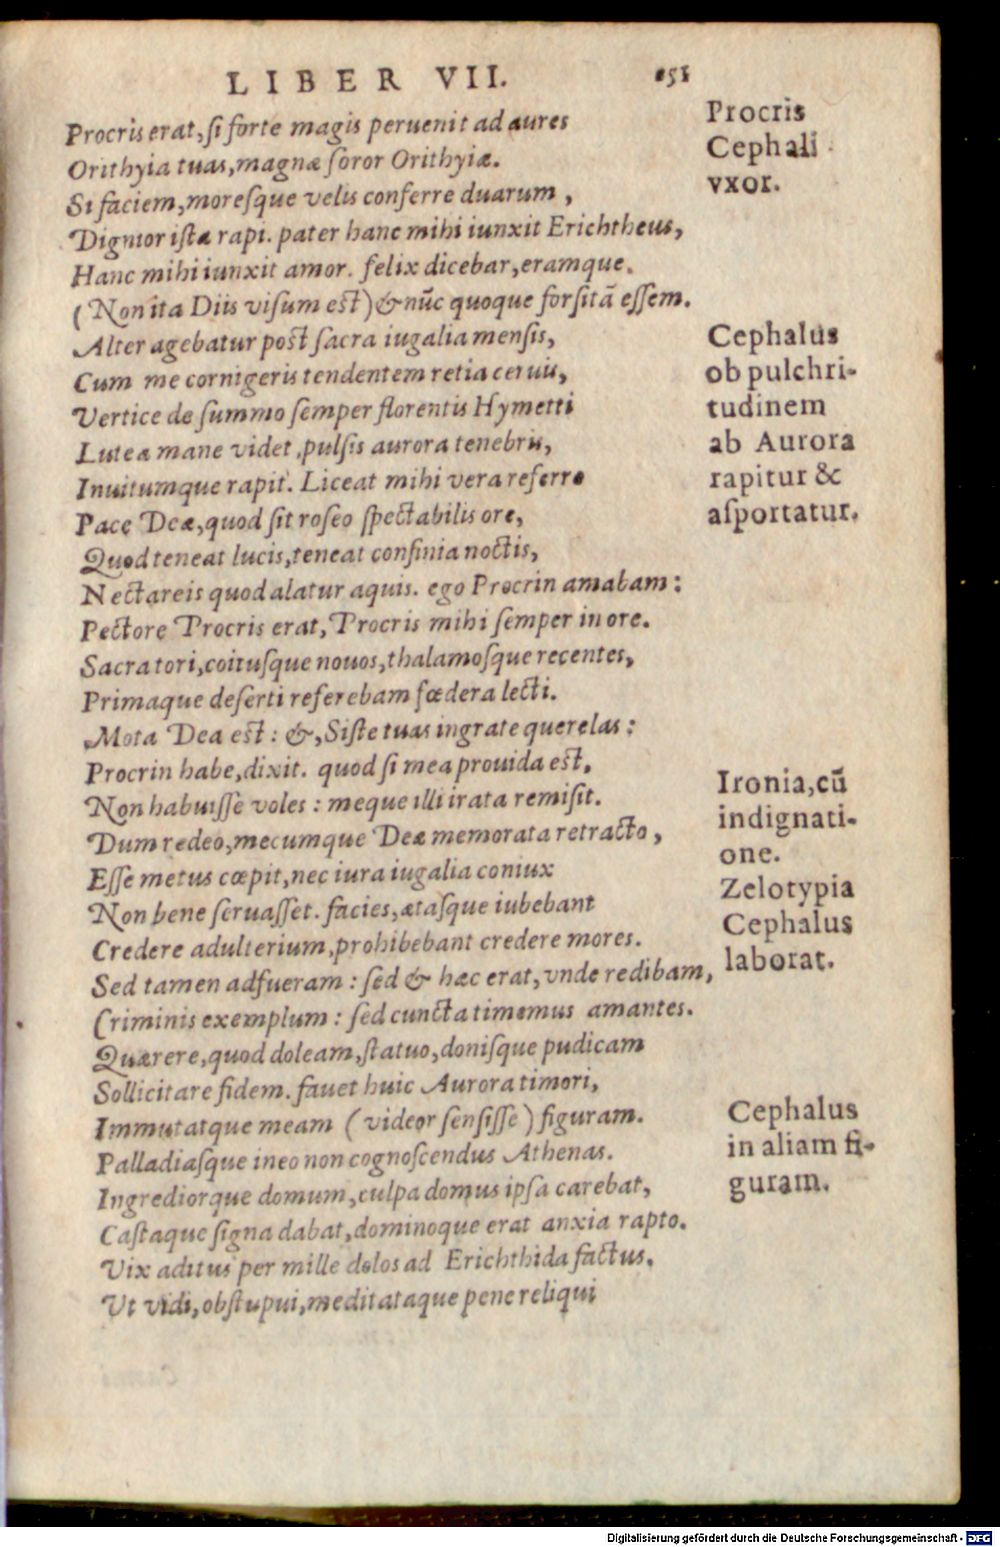 LIBER VII. 151
Procris erat, si forte magis peruenit ad aures
Orithyia tuas, magnæ soror Orithyiæ.
Si faciem, moresque velis conferre duarum,
Dignior ista rapi. pater hanc mihi iunxit Erichtheus,
Hanc mihi iunxit amor. felix dicebar, eramque.
(Non ita Diis visum est) & nũc quoque forsitã essem.
Alter agebatur post sacra iugalia mensis,
Cum me cornigeris tendentem retia ceruis,
Vertice de summo semper florentis Hymetti
Lutea mane videt, pulsis aurora tenebris,
Inuitumque rapit. Liceat mihi vera referre
Pace Deæ, quod sit roseo spectabilis ore,
Quod teneat lucis, teneat confinia noctis,
Nectareis quod alatur aquis. ego Procrin amabam:
Pectore Procris erat, Procris mihi semper in ore.
Sacra tori, coitusque nouos, thalamosque recentes,
Primaque deserti referebam fœdera lecti.
Mota Dea est: &, Siste tuas ingrate querelas:
Procrin habe, dixit. quod si mea prouida est,
Non habuisse voles: meque illi irata remisit.
Dum redeo, mecumque Deæ memorata retracto,
Esse metus cœpit, nec iura iugalia coniux
Non bene seruasset. facies, ætasque iubebant
Credere adulterium, prohibebant credere mores.
Sed tamen adfueram: sed & hæc erat, vnde redibam,
Criminis exemplum: sed cuncta timemus amantes.
Quærere, quod doleam, statuo, donisque pudicam
Sollicitare fidem. fauet huic Aurora timori,
Immutatque meam (videor sensisse) figuram.
Palladiasque ineo non cognoscendus Athenas.
Ingrediorque domum, culpa domus ipsa carebat,
Castaque signa dabat, dominoque erat anxia rapto.
Vix aditus per mille dolos ad Erichthida factus.
Ut vidi, obstupui, meditataque pene reliqui
Procris
Cephali
vxor.
Cephalus
ob pulchri-
tudinem
ab Aurora
rapitur &
asportatur.
Ironia, cũ
indignati-
one.
Zelotypia
Cephalus
laborat.
Cephalus
in aliam fi-
guram.
Digitalisierung gefördert durch die Deutsche Forschungsgemeinschaft - DFG